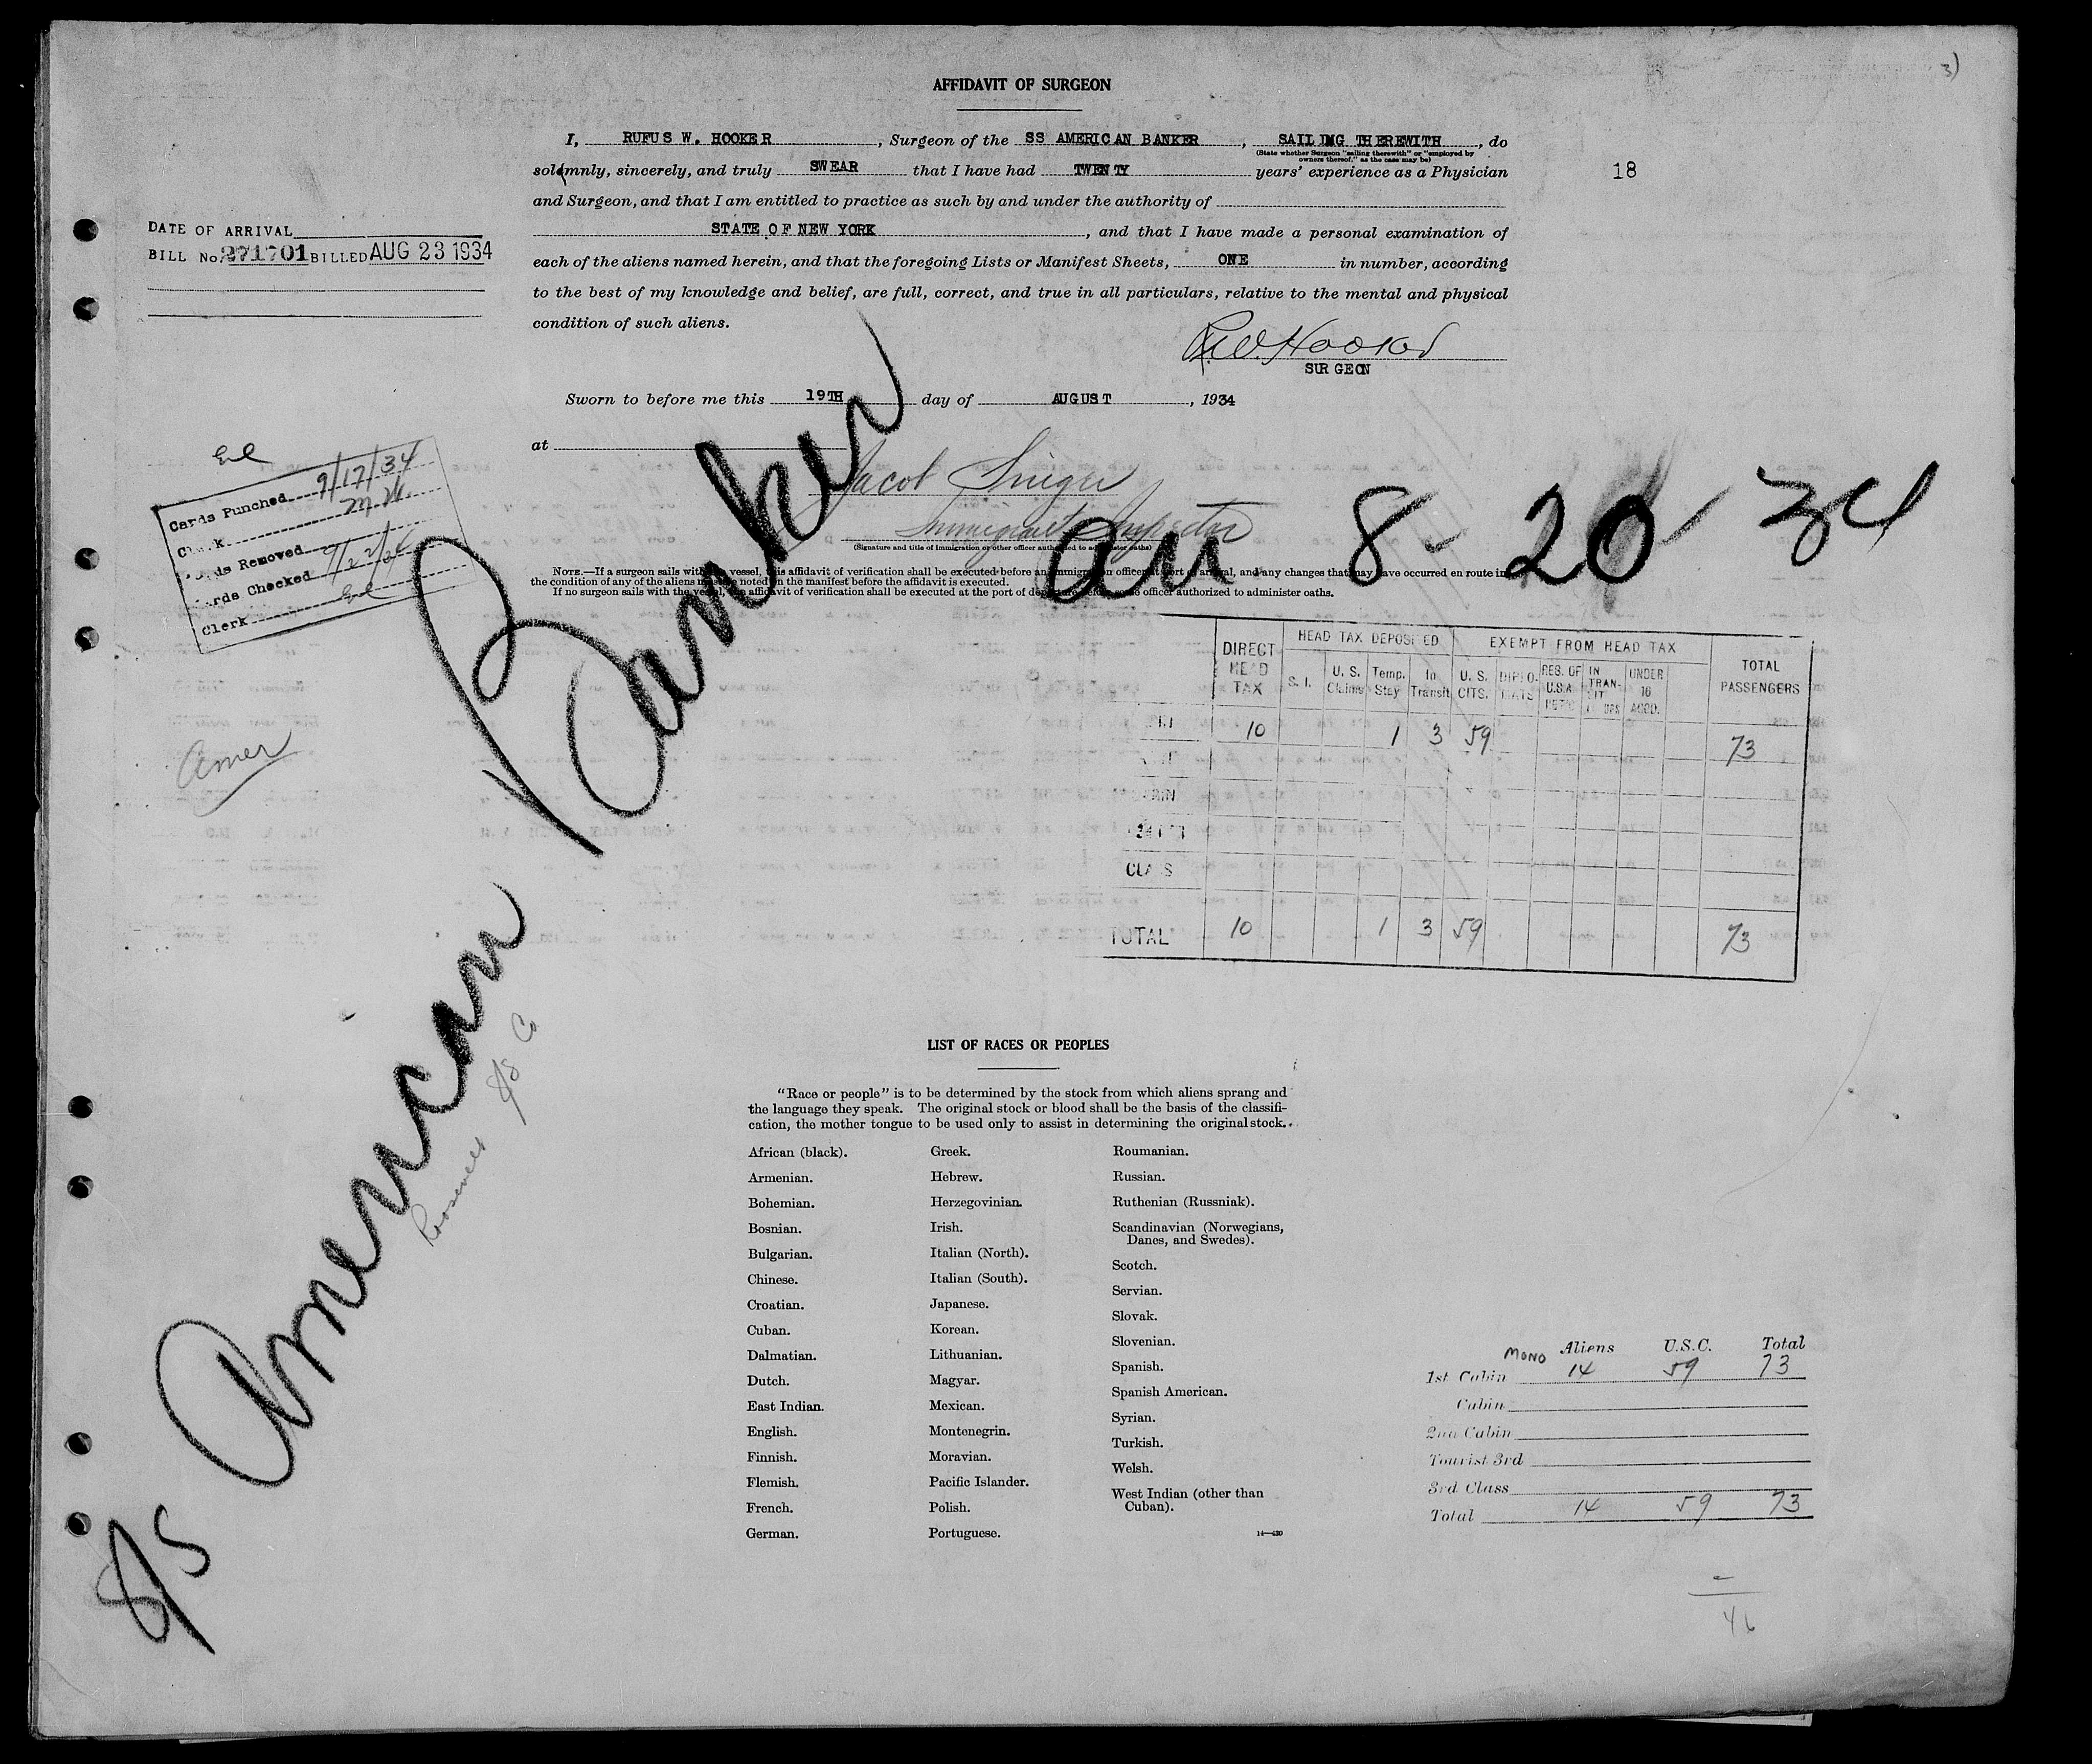 3)
AFFIDAVIT OF SURGEON
I, RUFUS W. HOOKER, Surgeon of the SS AMERICAN BANKER, SAILING THEREWITH, do
(State whether Surgeon "sailing therewith" or "employed by
owners thereof," as the case may be)
solemnly, sincerely, and truly SWEAR that I have had TWENTY years' experience as a Physician
18
and Surgeon, and that I am entitled to practice as such by and under the authority of
STATE OF NEW YORK, and that I have made a personal examination of
each of the aliens named herein, and that the foregoing Lists or Manifest Sheets, ONE in number, according
to the best of my knowledge and belief, are full, correct, and true in all particulars, relative to the mental and physical
condition of such aliens.
DATE OF ARRIVAL
BILL No. 271701 BILLED AUG 23 1934
R.W. Hooker
SURGEON
Sworn to before me this 19TH day of AUGUST, 1934
at
Jacob Singer
Immigrant Inspector
(Signature and title of immigration or other officer authorized to administer oaths)
NOTE.—If a surgeon sails with the vessel, this affidavit of verification shall be executed before an immigration officer at port of arrival, and any changes that may have occurred en route in
the condition of any of the aliens must be noted on the manifest before the affidavit is executed.
If no surgeon sails with the vessel, the affidavit of verification shall be executed at the port of departure before some officer authorized to administer oaths.
Cards Punched 9/17/34
Clerk
Cards Removed
Cards Checked 9/22/34
Clerk
Amer
S/S American Banker
arr 8-20-34
Roosevelt S/S Co
DIRECT HEAD TAX
HEAD TAX DEPOSITED
EXEMPT FROM HEAD TAX
TOTAL PASSENGERS
S. I.
U. S. Claims
Temp. Stay
In Transit
U. S. CITS.
DIPLO-MATS
RES. OF U.S.A.
IN TRAN-SIT
UNDER 16 ACCD.
10 1 3 59 73
CLASS
TOTAL 10 1 3 59 73
LIST OF RACES OR PEOPLES
"Race or people" is to be determined by the stock from which aliens sprang and
the language they speak. The original stock or blood shall be the basis of the classifi-
cation, the mother tongue to be used only to assist in determining the original stock.
African (black).
Armenian.
Bohemian.
Bosnian.
Bulgarian.
Chinese.
Croatian.
Cuban.
Dalmatian.
Dutch.
East Indian.
English.
Finnish.
Flemish.
French.
German.
Greek.
Hebrew.
Herzegovinian.
Irish.
Italian (North).
Italian (South).
Japanese.
Korean.
Lithuanian.
Magyar.
Mexican.
Montenegrin.
Moravian.
Pacific Islander.
Polish.
Portuguese.
Roumanian.
Russian.
Ruthenian (Russniak).
Scandinavian (Norwegians,
Danes, and Swedes).
Scotch.
Servian.
Slovak.
Slovenian.
Spanish.
Spanish American.
Syrian.
Turkish.
Welsh.
West Indian (other than
Cuban).
14—430
MONO Aliens U.S.C. Total
1st Cabin 14 59 73
Cabin
2nd Cabin
Tourist 3rd
3rd Class
Total 14 59 73
46